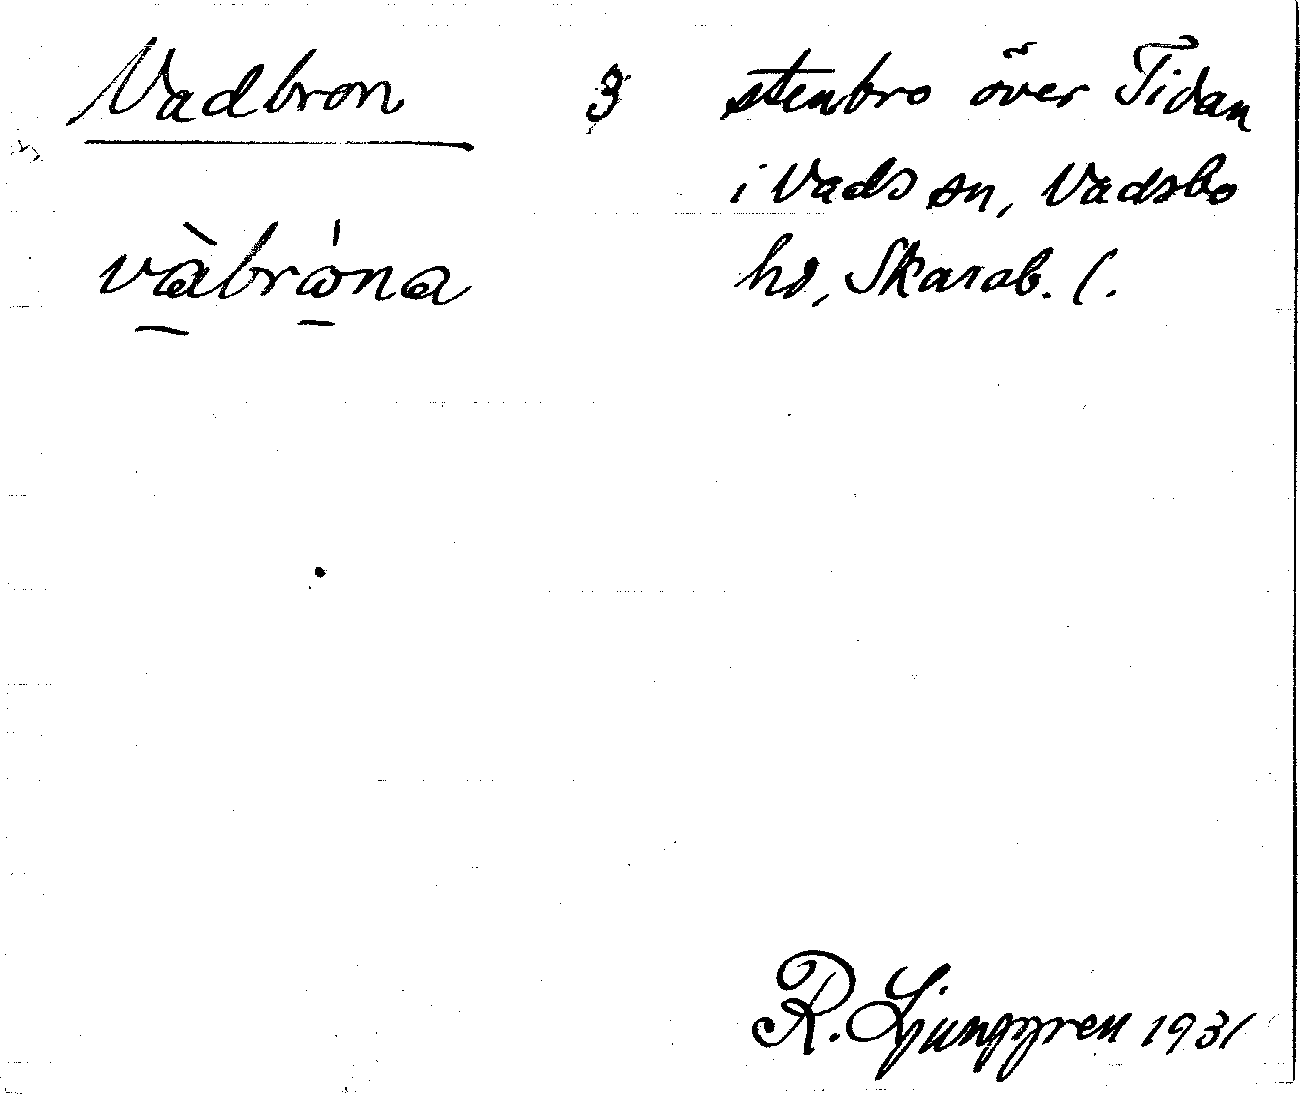 Vadbron 3 stenbro över Tidan
i Vads sn, Vadsbo
vàbróna hd, Skarab. l.
R. Ljunggren 1931